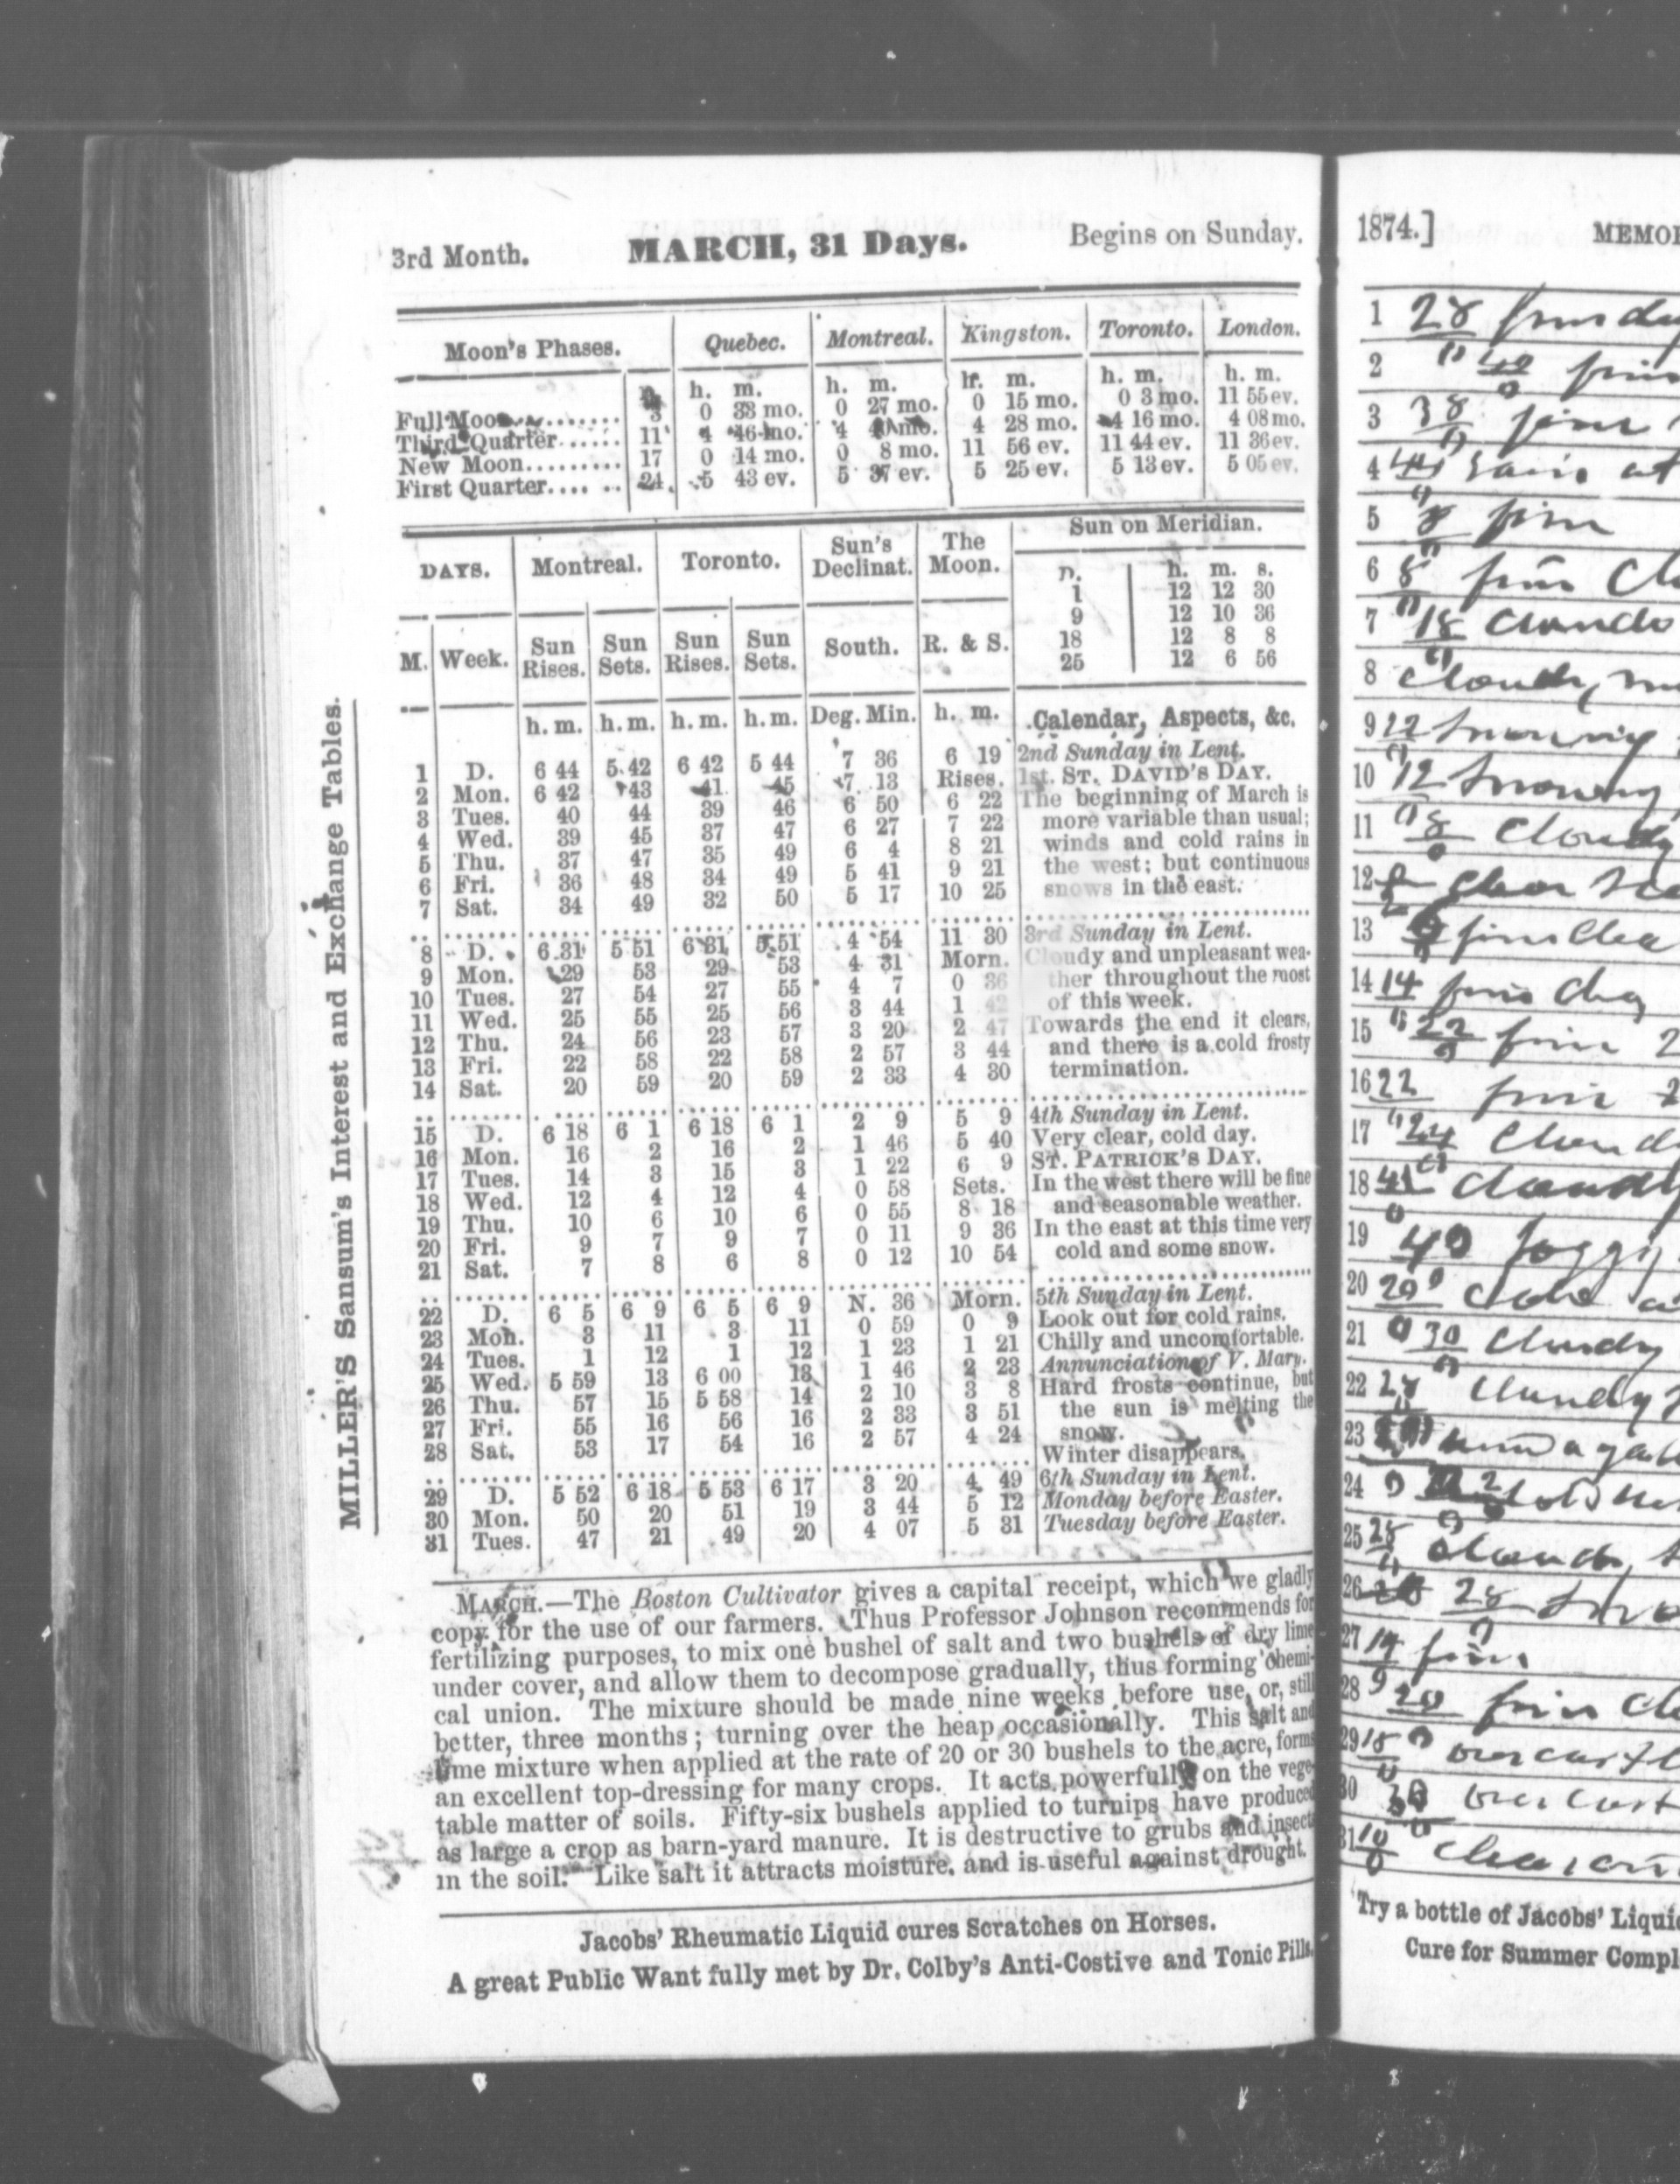 3rd Month. MARCH, 31 Days. Begins on Sunday.
Moon's Phases. Quebec. Montreal. Kingston. Toronto. London.
D. h. m. h. m. h. m. h. m. h. m.
Full Moon......... 3 0 38 mo. 0 27 mo. 0 15 mo. 0 3 mo. 11 55 ev.
Third Quarter...... 11 4 46 mo. 4 mo. 4 28 mo. 4 16 mo. 4 08 mo.
New Moon......... 17 0 14 mo. 0 8 mo. 11 56 ev. 11 44 ev. 11 36 ev.
First Quarter.... .. 24 5 43 ev. 5 37 ev. 5 25 ev. 5 13 ev. 5 05 ev.
DAYS. Montreal. Toronto. Sun's Declinat. The Moon. Sun on Meridian.
D. h. m. s.
1 12 12 30
9 12 10 36
18 12 8 8
25 12 6 56
M. Week. Sun Rises. Sun Sets. Sun Rises. Sun Sets. South. R. & S.
h. m. h. m. h. m. h. m. Deg. Min. h. m. Calendar, Aspects, &c.
1 D. 6 44 5 42 6 42 5 44 7 36 6 19 2nd Sunday in Lent.
2 Mon. 6 42 43 41 45 7 13 Rises. 1st. ST. DAVID'S DAY.
3 Tues. 40 44 39 46 6 50 6 22 The beginning of March is
4 Wed. 39 45 37 47 6 27 7 22 more variable than usual;
5 Thu. 37 47 35 49 6 4 8 21 winds and cold rains in
6 Fri. 36 48 34 49 5 41 9 21 the west; but continuous
7 Sat. 34 49 32 50 5 17 10 25 snows in the east.
8 D. 6 31 5 51 6 31 5 51 4 54 11 30 3rd Sunday in Lent.
9 Mon. 29 53 29 53 4 31 Morn. Cloudy and unpleasant wea-
10 Tues. 27 54 27 55 4 7 0 36 ther throughout the most
11 Wed. 25 55 25 56 3 44 1 42 of this week.
12 Thu. 24 56 23 57 3 20 2 47 Towards the end it clears,
13 Fri. 22 58 22 58 2 57 3 44 and there is a cold frosty
14 Sat. 20 59 20 59 2 33 4 30 termination.
15 D. 6 18 6 1 6 18 6 1 2 9 5 9 4th Sunday in Lent.
16 Mon. 16 2 16 2 1 46 5 40 Very clear, cold day.
17 Tues. 14 3 15 3 1 22 6 9 ST. PATRICK'S DAY.
18 Wed. 12 4 12 4 0 58 Sets. In the west there will be fine
19 Thu. 10 6 10 6 0 55 8 18 and seasonable weather.
20 Fri. 9 7 9 7 0 11 9 36 In the east at this time very
21 Sat. 7 8 6 8 0 12 10 54 cold and some snow.
22 D. 6 5 6 9 6 5 6 9 N. 36 Morn. 5th Sunday in Lent.
23 Mon. 3 11 3 11 0 59 0 9 Look out for cold rains.
24 Tues. 1 12 1 12 1 23 1 21 Chilly and uncomfortable.
25 Wed. 5 59 13 6 00 13 1 46 2 23 Annunciation of V. Mary.
26 Thu. 57 15 5 58 14 2 10 3 8 Hard frosts continue, but
27 Fri. 55 16 56 16 2 33 3 51 the sun is melting the
28 Sat. 53 17 54 16 2 57 4 24 snow.
Winter disappears.
29 D. 5 52 6 18 5 53 6 17 3 20 4 49 6th Sunday in Lent.
30 Mon. 50 20 51 19 3 44 5 12 Monday before Easter.
31 Tues. 47 21 49 20 4 07 5 31 Tuesday before Easter.
MARCH.—The Boston Cultivator gives a capital receipt, which we gladly
copy for the use of our farmers. Thus Professor Johnson recommends for
fertilizing purposes, to mix one bushel of salt and two bushels of dry lime
under cover, and allow them to decompose gradually, thus forming chemi-
cal union. The mixture should be made nine weeks before use, or, still
better, three months; turning over the heap occasionally. This salt and
lime mixture when applied at the rate of 20 or 30 bushels to the acre, forms
an excellent top-dressing for many crops. It acts powerfully on the vege-
table matter of soils. Fifty-six bushels applied to turnips have produced
as large a crop as barn-yard manure. It is destructive to grubs and insects
in the soil. Like salt it attracts moisture, and is useful against drought.
Jacobs' Rheumatic Liquid cures Scratches on Horses.
A great Public Want fully met by Dr. Colby's Anti-Costive and Tonic Pills.
MILLER'S Sansum's Interest and Exchange Tables.
1874.] MEMO
1 28
2
3 38
4
5 8 fine
6 8 fine
7 18
8 cloudy
9 12 snowing
10 12 snowing
11 8 cloudy
12 clear
13 fine
14 14 fine day
15 22 fine
16 22 fine
17 24
18 41 cloudy
19 40 foggy
20 20
21 30 cloudy
22 28 cloudy
23
24
25 28
26 28
27 14 fine
28 20 fine
29 18 overcast
30 overcast
31 10 clear
Try a bottle of Jacobs' Liquid
Cure for Summer Compl